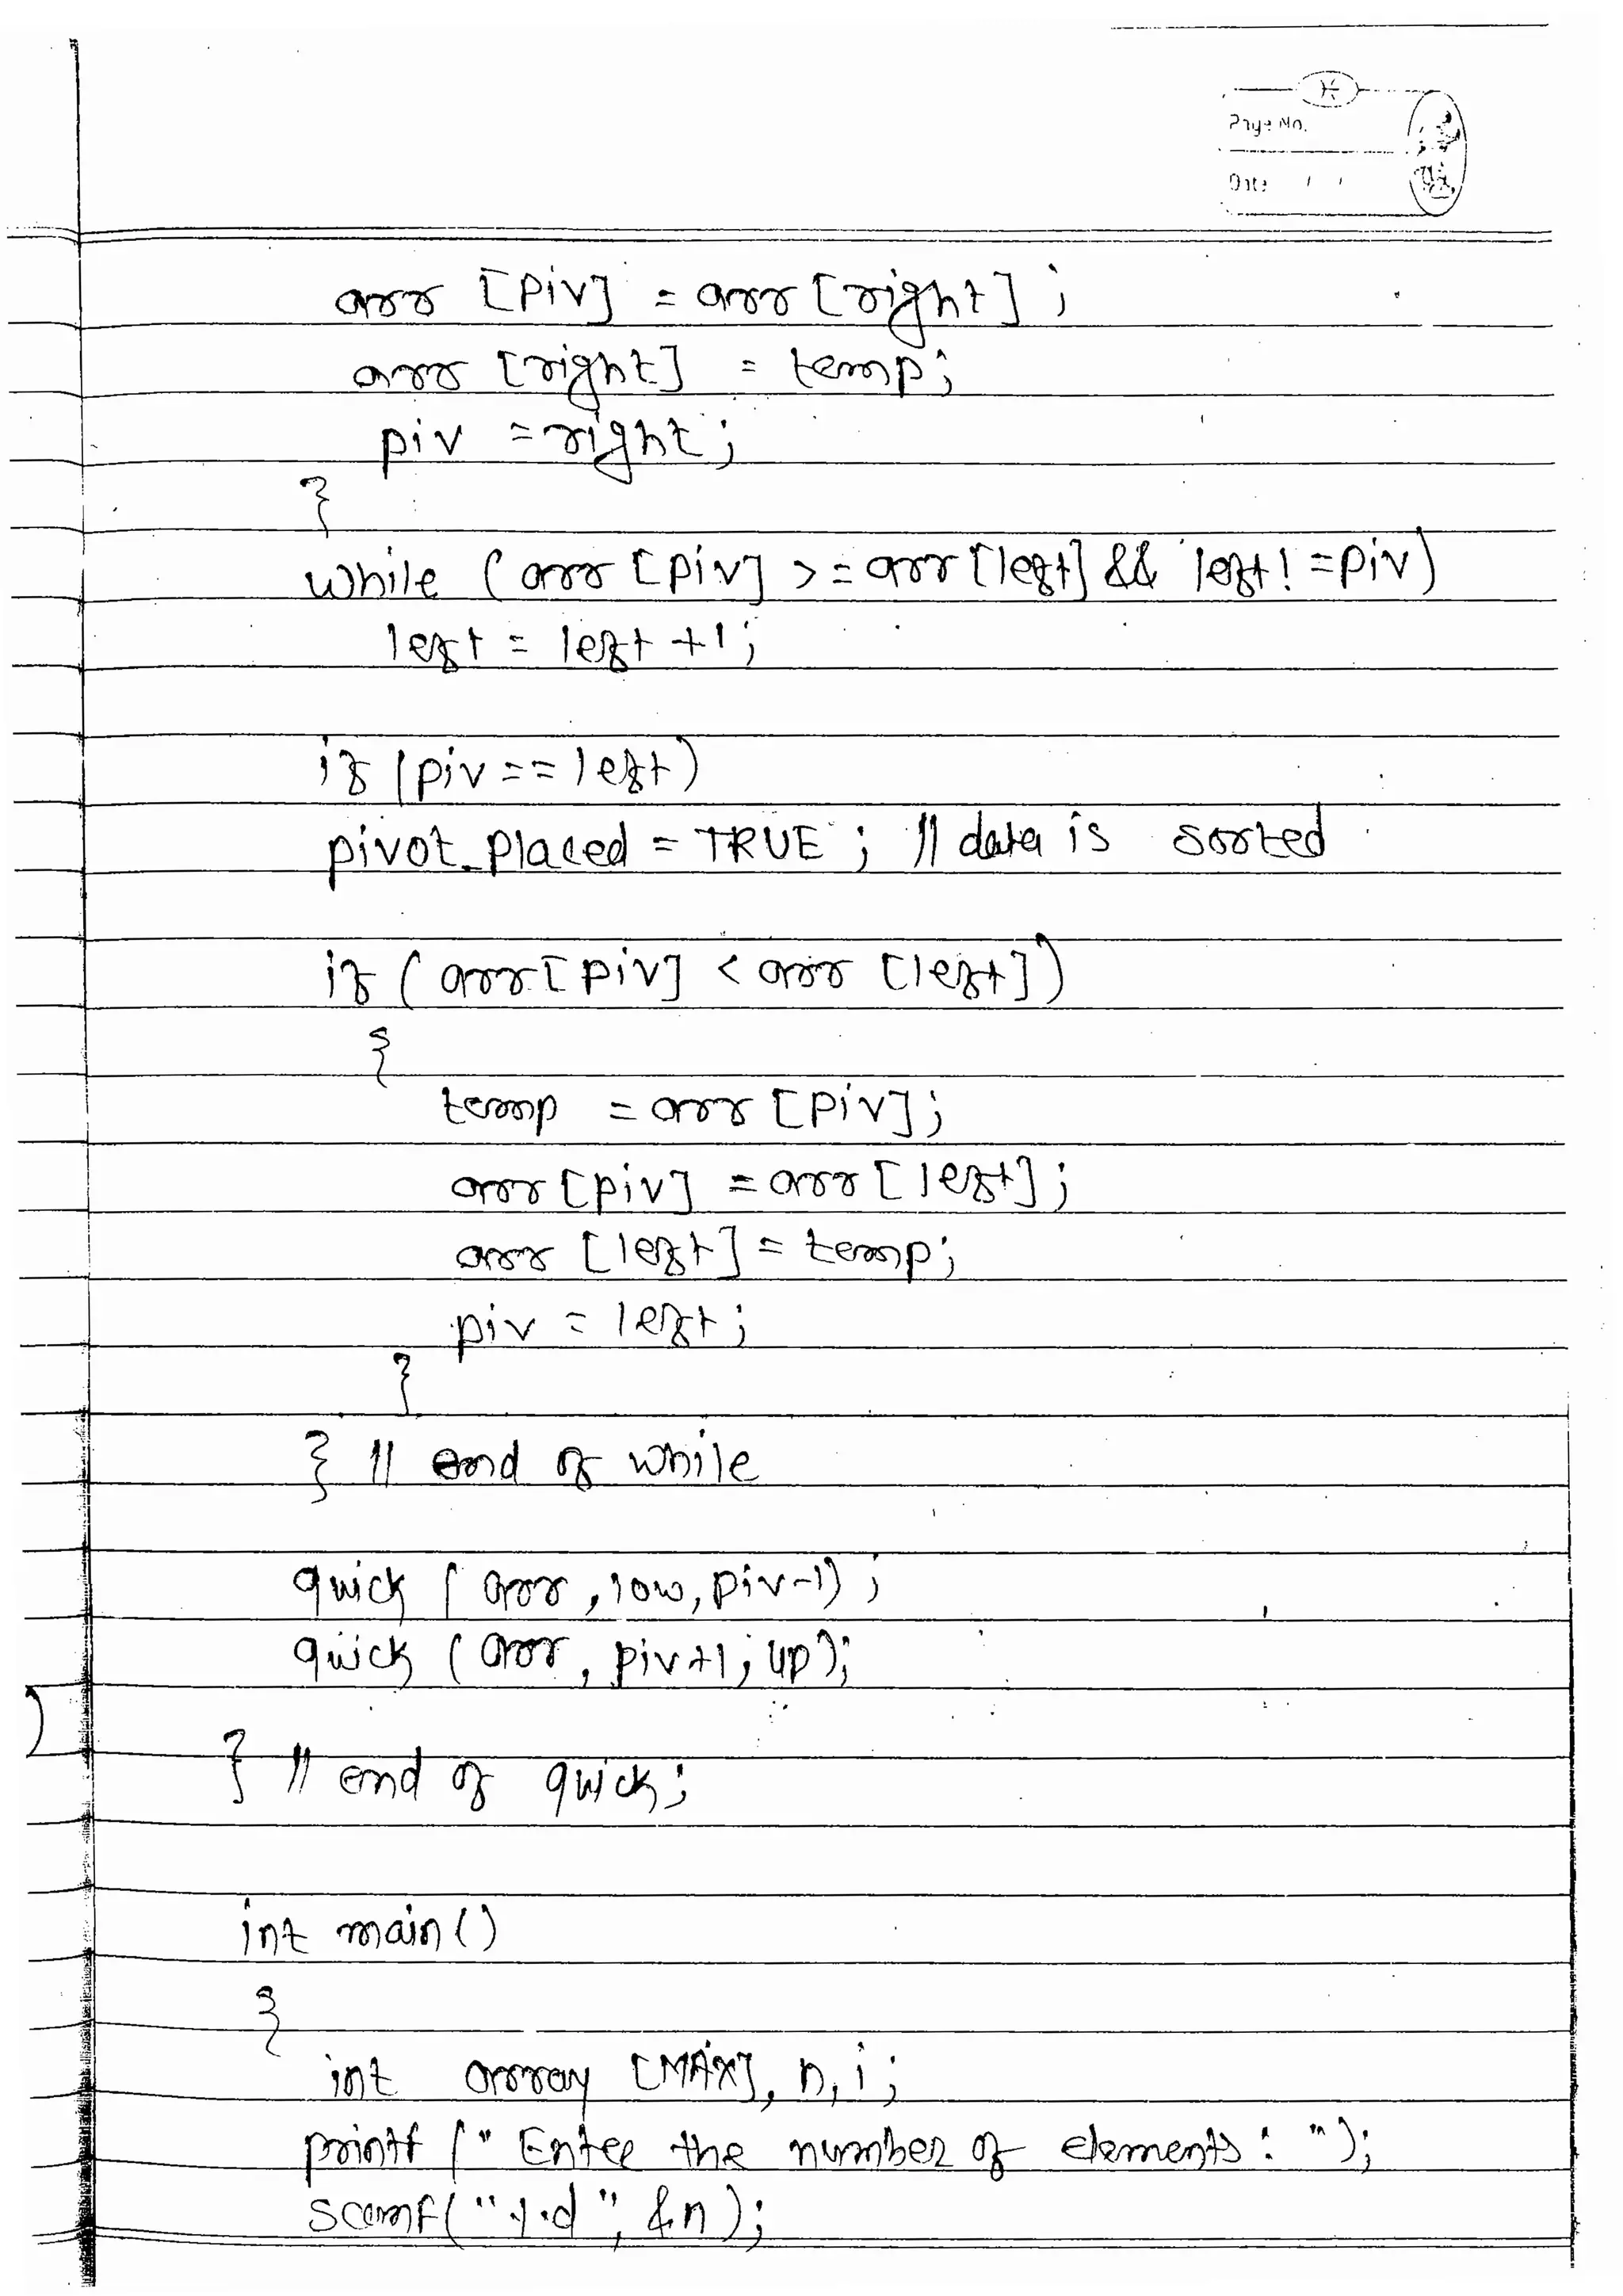 Page No.
Date / /
arr [piv] = arr [right] ;
arr [right] = temp;
piv = right ;
}
while ( arr [piv] >= arr [left] && left != piv)
left = left +1 ;
if (piv == left)
pivot_placed = TRUE ; // data is sorted
if ( arr [piv] < arr [left])
{
temp = arr [piv];
arr [piv] = arr [left] ;
arr [left] = temp;
piv = left ;
}
} // end of while
quick ( arr , low, piv-1) ;
quick ( arr , piv+1 ; up );
} // end of quick ;
int main ()
{
int array [MAX], n, i ;
printf (" Enter the number of elements : ");
scanf( "%d ", &n );